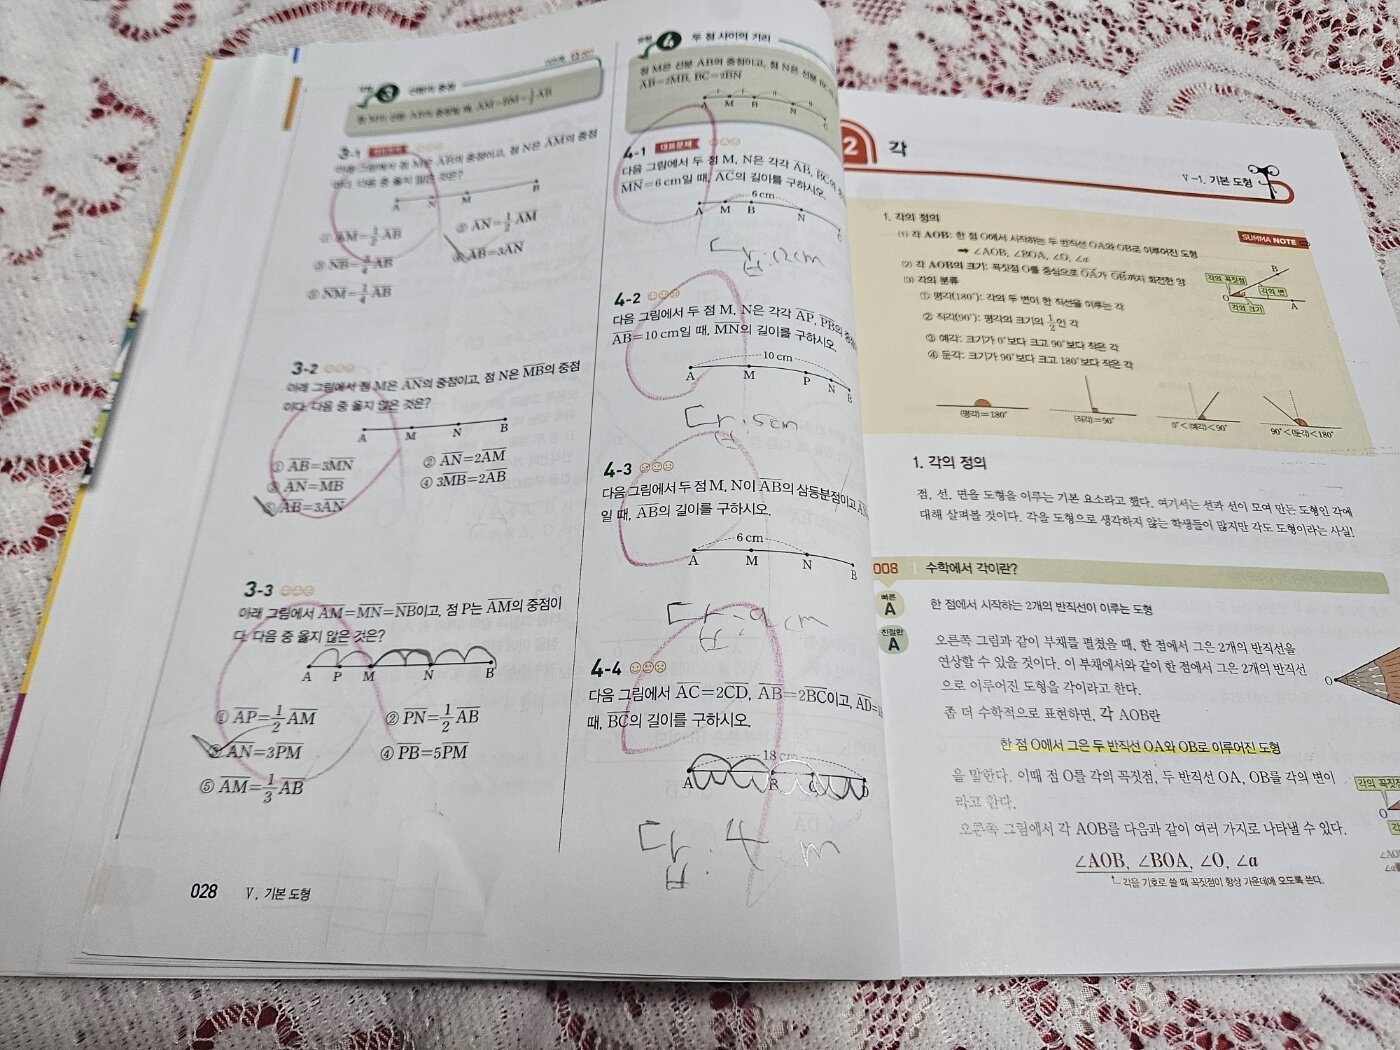 3 선분의 중점
점 M이 선분 AB의 중점일 때, AM=BM=1/2 AB
3-1 대표문제
아래 그림에서 점 M은 AB의 중점이고, 점 N은 AM의 중점
이다. 다음 중 옳지 않은 것은?
A N M B
① AM=1/2 AB ② AN=1/2 AM
③ NB=3/4 AB ④ AB=3AN
⑤ NM=1/4 AB
3-2
아래 그림에서 점 M은 AN의 중점이고, 점 N은 MB의 중점
이다. 다음 중 옳지 않은 것은?
A M N B
① AB=3MN ② AN=2AM
③ AN=MB ④ 3MB=2AB
⑤ AB=3AN
3-3
아래 그림에서 AM=MN=NB이고, 점 P는 AM의 중점이
다. 다음 중 옳지 않은 것은?
A P M N B
① AP=1/2 AM ② PN=1/2 AB
③ AN=3PM ④ PB=5PM
⑤ AM=1/3 AB
028 Ⅴ. 기본 도형
유형 4 두 점 사이의 거리
점 M은 선분 AB의 중점이고, 점 N은 선분
AB=2MB, BC=2BN
A M B N C
4-1 대표문제
다음 그림에서 두 점 M, N은 각각 AB, BC의
MN=6 cm일 때, AC의 길이를 구하시오.
6 cm
A M B N C
답: 12cm
4-2
다음 그림에서 두 점 M, N은 각각 AP, PB의
AB=10 cm일 때, MN의 길이를 구하시오.
10 cm
A M P N B
답: 5cm
4-3
다음 그림에서 두 점 M, N이 AB의 삼등분점이고
일 때, AB의 길이를 구하시오.
6 cm
A M N B
답: 9cm
4-4
다음 그림에서 AC=2CD, AB=2BC이고, AD=
때, BC의 길이를 구하시오.
18
A B C D
답: 4 m
2 각
Ⅴ-1. 기본 도형
SUMMA NOTE
1. 각의 정의
(1) 각 AOB: 한 점 O에서 시작하는 두 반직선 OA와 OB로 이루어진 도형
➡ ∠AOB, ∠BOA, ∠O, ∠a
(2) 각 AOB의 크기: 꼭짓점 O를 중심으로 OA가 OB까지 회전한 양
(3) 각의 분류
① 평각(180°): 각의 두 변이 한 직선을 이루는 각
② 직각(90°): 평각의 크기의 1/2인 각
③ 예각: 크기가 0°보다 크고 90°보다 작은 각
④ 둔각: 크기가 90°보다 크고 180°보다 작은 각
각의 꼭짓점 B
각의 변
O A
각의 크기
(평각)=180° (직각)=90° 0°<(예각)<90° 90°<(둔각)<180°
1. 각의 정의
점, 선, 면을 도형을 이루는 기본 요소라고 했다. 여기서는 선과 선이 모여 만든 도형인 각에
대해 살펴볼 것이다. 각을 도형으로 생각하지 않는 학생들이 많지만 각도 도형이라는 사실!
008 수학에서 각이란?
빠른 A
한 점에서 시작하는 2개의 반직선이 이루는 도형
친절한 A
오른쪽 그림과 같이 부채를 펼쳤을 때, 한 점에서 그은 2개의 반직선을
연상할 수 있을 것이다. 이 부채에서와 같이 한 점에서 그은 2개의 반직선
으로 이루어진 도형을 각이라고 한다.
O
좀 더 수학적으로 표현하면, 각 AOB란
한 점 O에서 그은 두 반직선 OA와 OB로 이루어진 도형
을 말한다. 이때 점 O를 각의 꼭짓점, 두 반직선 OA, OB를 각의 변이
라고 한다.
각의 꼭짓
O
오른쪽 그림에서 각 AOB를 다음과 같이 여러 가지로 나타낼 수 있다.
∠AOB, ∠BOA, ∠O, ∠a
각을 기호로 쓸 때 꼭짓점이 항상 가운데에 오도록 쓴다.